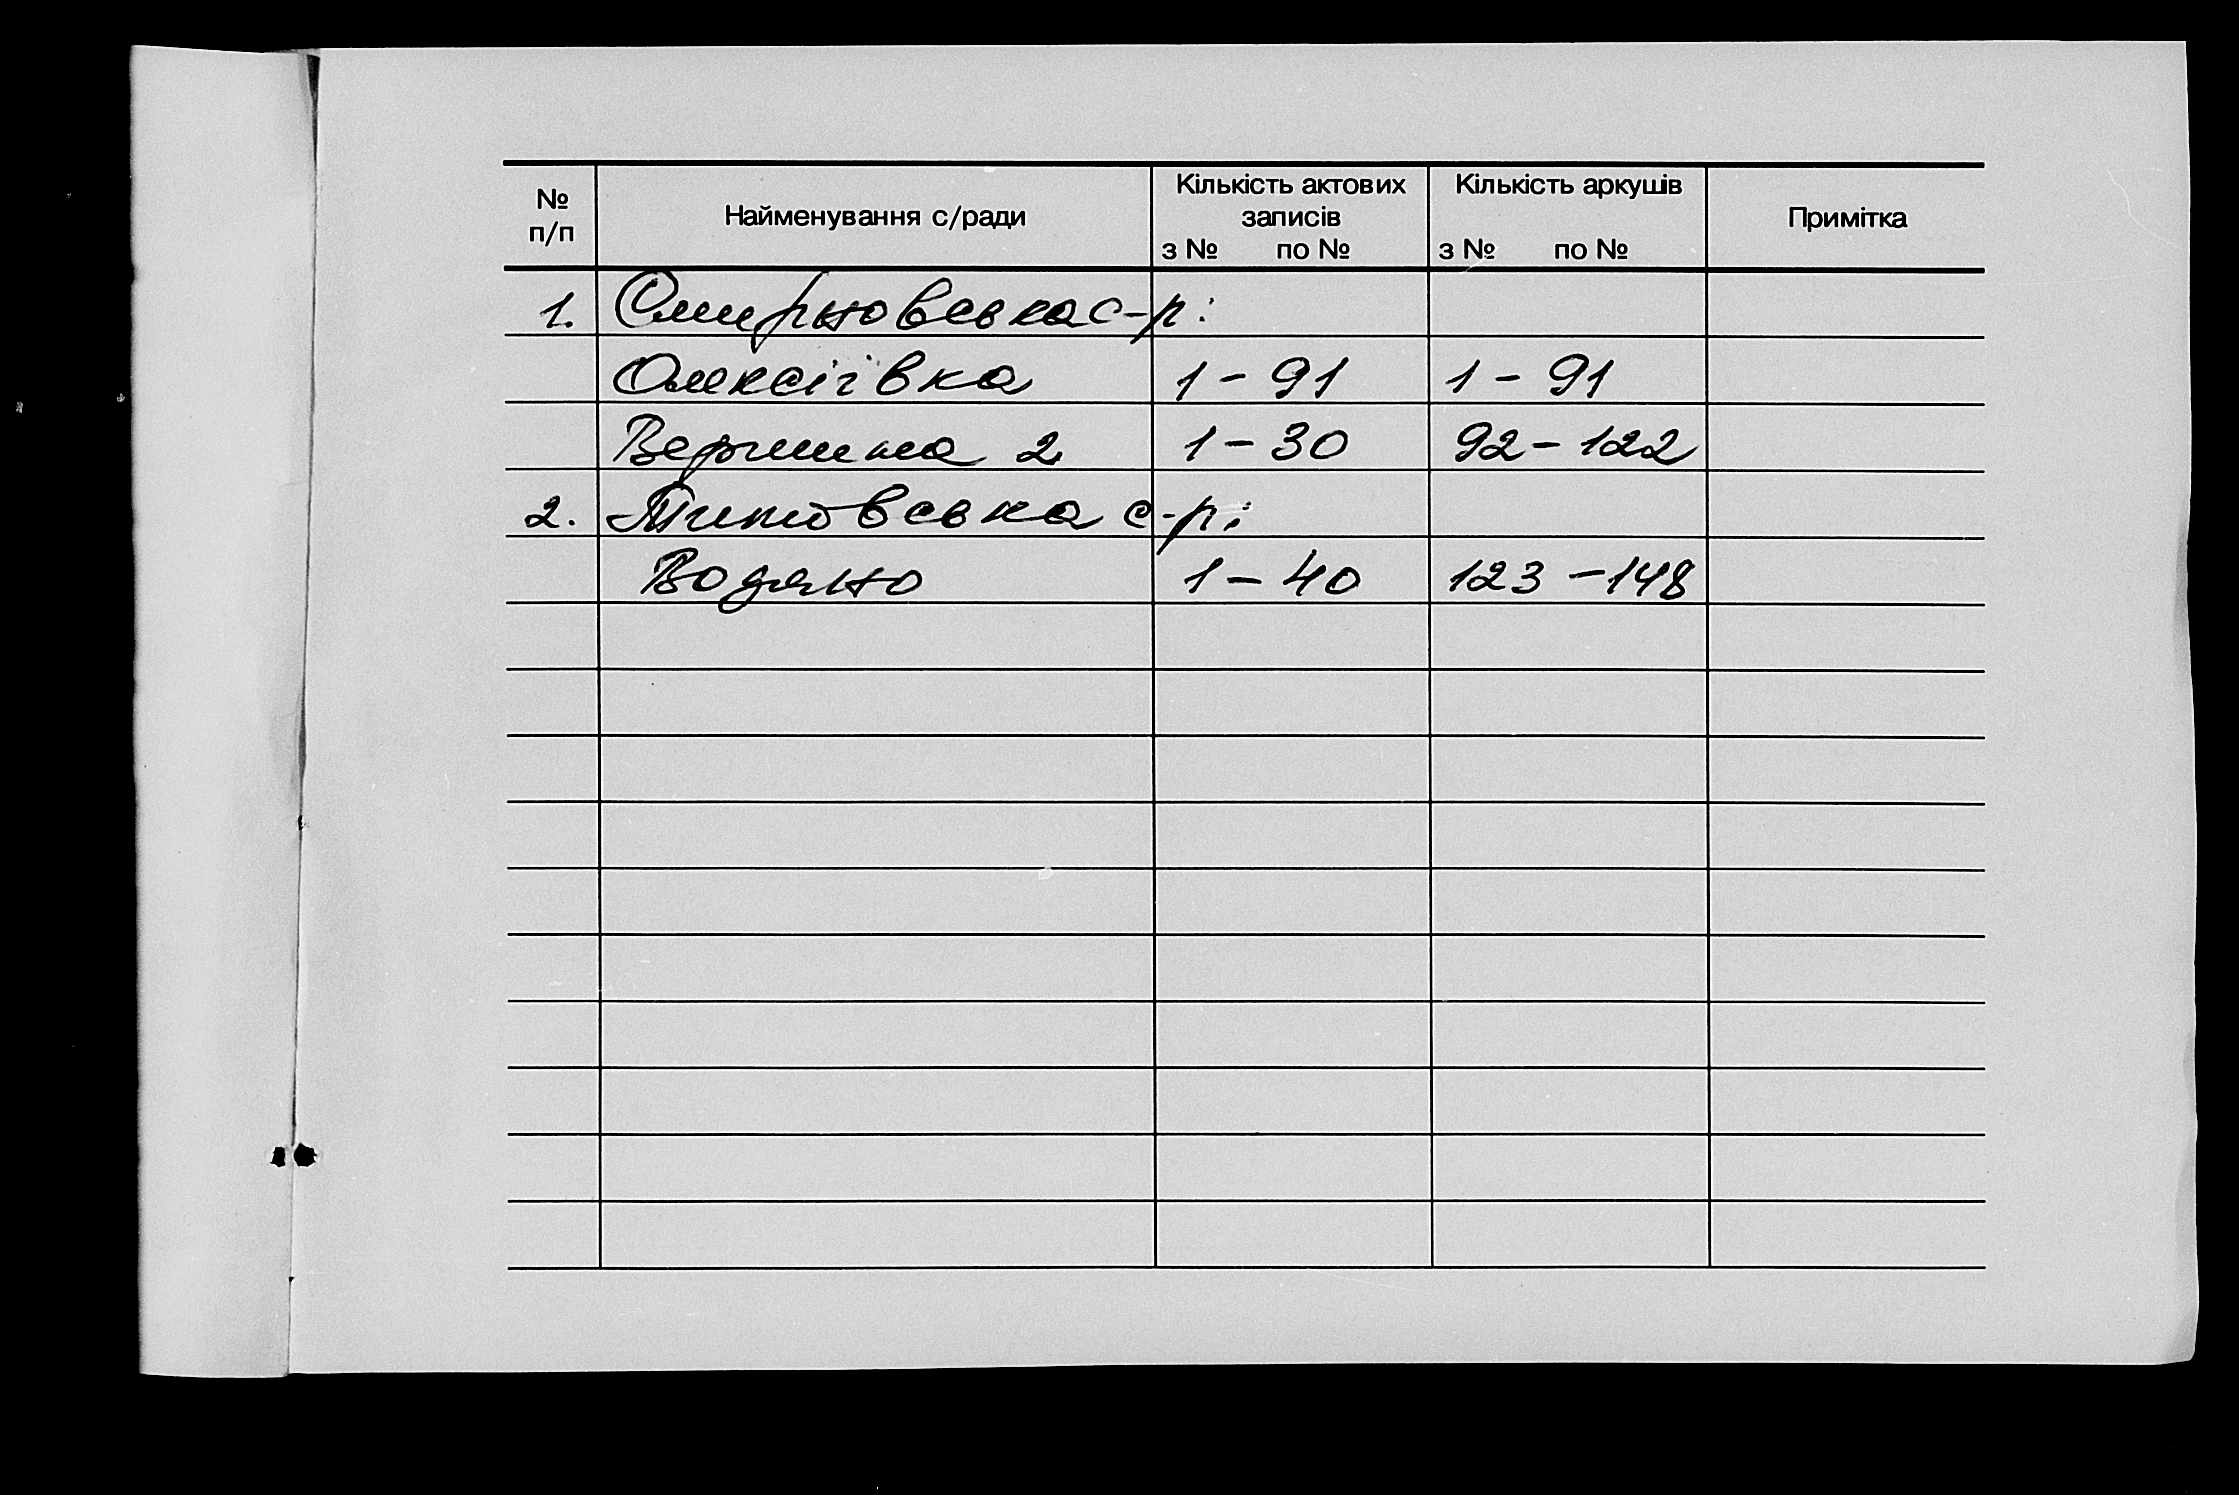 № п/п Найменування с/ради Кількість актових записів з № по № Кількість аркушів з № по № Примітка
1. Смирновська с-р:
Олексіївка 1 - 91 1 - 91
Вершина 2 1 - 30 92 - 122
2. Титовська с-р:
Водяно 1 - 40 123 - 148